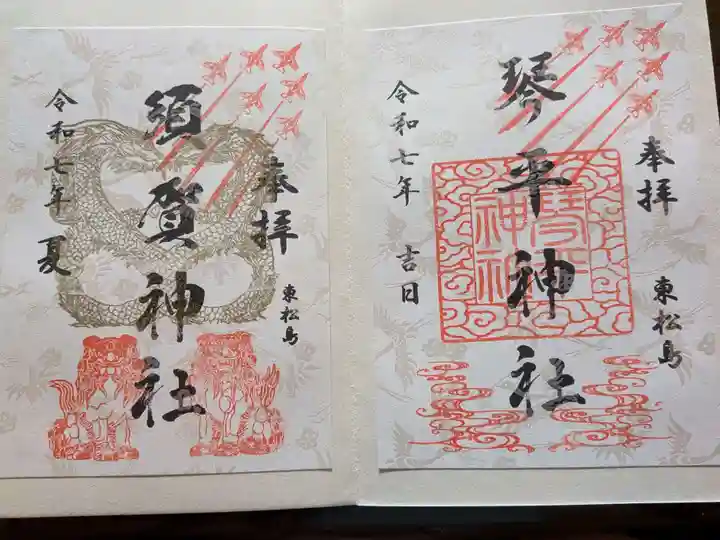 奉拝
東松島
琴平神社
琴平
神社
令和七年 吉日
奉拝
東松島
須賀神社
令和七年 夏